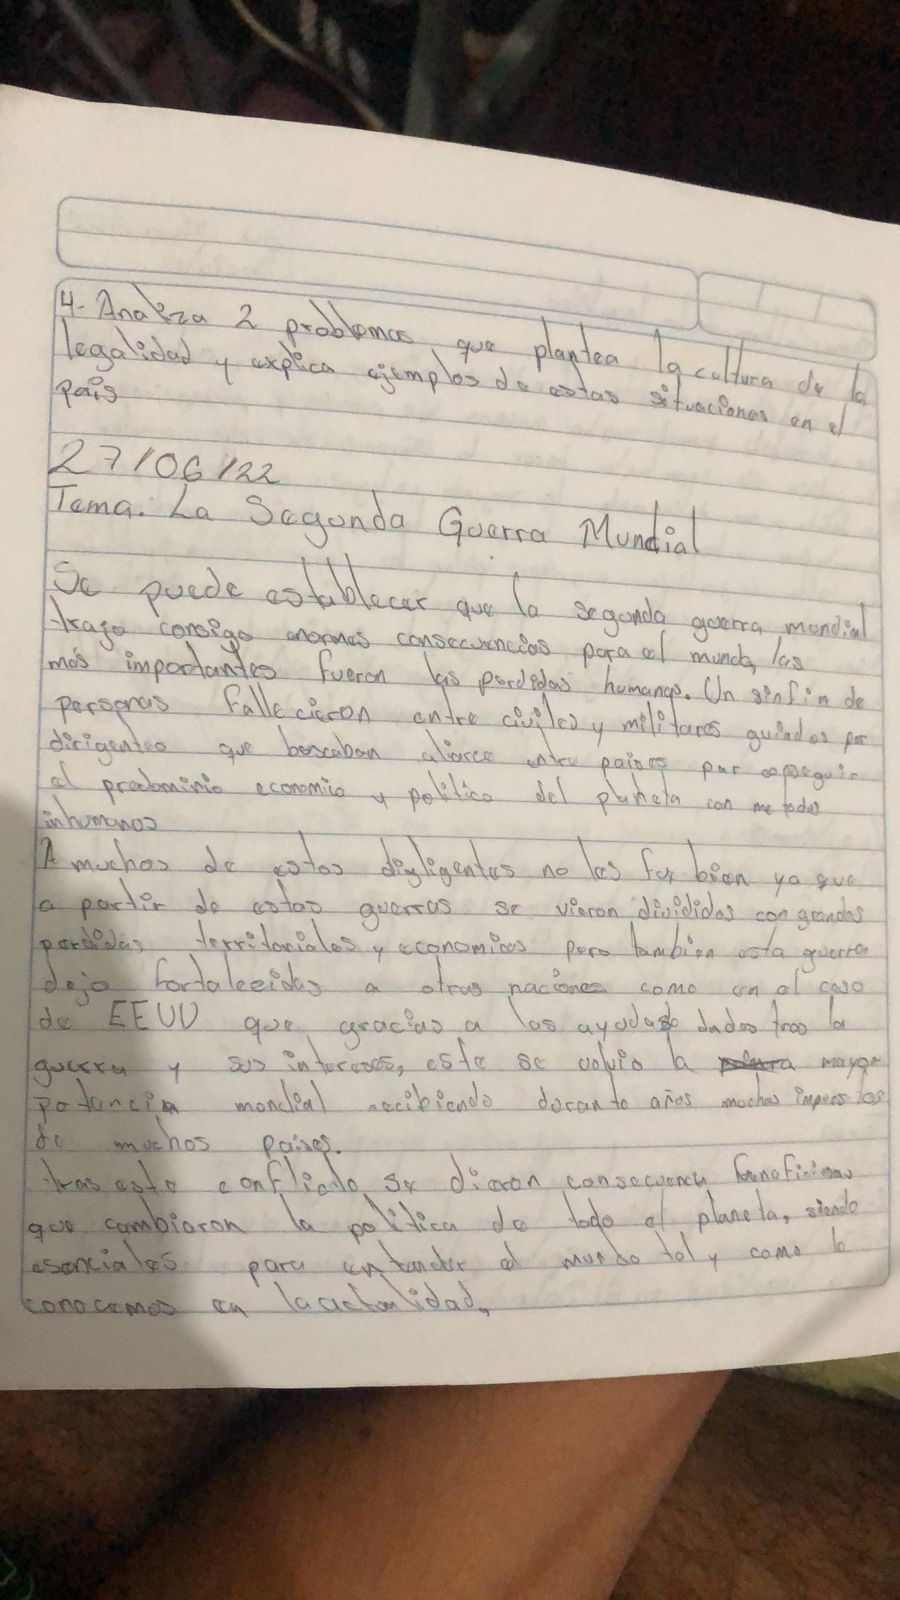 4- Analiza 2 problemas que plantea la cultura de la
legalidad y explica ejemplos de estas situaciones en el
pais
27/06/22
Tema: La Segunda Guerra Mundial
Se puede establecer que la segunda guerra mundial
trajo consigo enormes consecuencias para el mundo, las
más importantes fueron las perdidas humanas. Un sinfin de
personas fallecieron entre civiles y militares guiados por
dirigentes que buscaban aliarce entre paises par conseguir
el predominio economico y politico del planeta con metodos
inhumanos
A muchos de estos digligentes no les fue bien ya que
a partir de estas guerras se vieron divididas con grandes
perdidas territoriales y economicas pero tambien esta guerra
dejo fortalecidas a otras naciones como en el caso
de EEUU que gracias a las ayudas dadas tras la
guerra y sus intereses, este se volvio la mayor
potencia mondial recibiendo durante años muchos impuestos
de muchos paises.
tras este conflicto se dieron consecuencu beneficiosas
que cambiaron la politica de todo el planeta, siendo
esenciales para entender el mundo tal y como lo
conocemos en la actualidad.